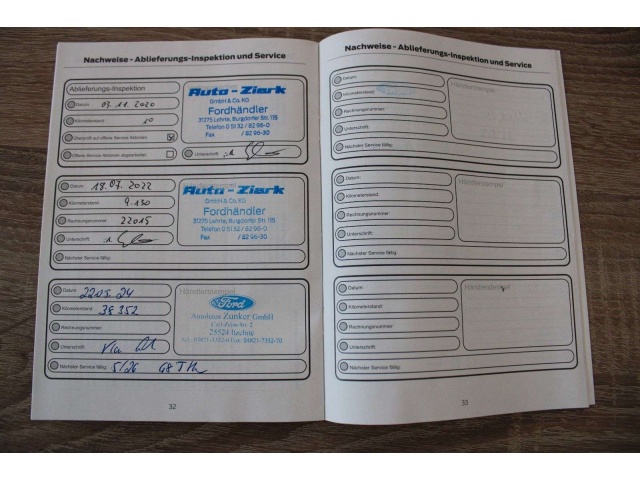 Nachweise - Ablieferungs-Inspektion und Service
Ablieferungs-Inspektion
Datum: 03.11.2020
Kilometerstand: 10
Überprüft auf offene Service Aktionen:
Offene Service Aktionen abgearbeitet:
Unterschrift:
Auto - Ziark
GmbH & Co. KG
Fordhändler
31275 Lehrte, Burgdorfer Str. 115
Telefon 0 51 32 / 82 96-0
Fax / 82 96-30
Datum: 18.07.2022
Kilometerstand: 9.130
Rechnungsnummer: 22015
Unterschrift:
Nächster Service fällig:
Händlerstempel
Auto - Ziark
GmbH & Co. KG
Fordhändler
31275 Lehrte, Burgdorfer Str. 115
Telefon 0 51 32 / 82 96-0
Fax / 82 96-30
Datum: 22.05.24
Kilometerstand: 38 352
Rechnungsnummer:
Unterschrift:
Nächster Service fällig: 5/26 68 T km
Händlerstempel
Ford
Autohaus Zunker GmbH
Carl-Zeiss-Str. 2
25524 Itzehoe
32
Nachweise - Ablieferungs-Inspektion und Service
Datum:
Kilometerstand:
Rechnungsnummer:
Unterschrift:
Nächster Service fällig:
Händlerstempel
Datum:
Kilometerstand:
Rechnungsnummer:
Unterschrift:
Nächster Service fällig:
Händlerstempel
Datum:
Kilometerstand:
Rechnungsnummer:
Unterschrift:
Nächster Service fällig:
Händlerstempel
33